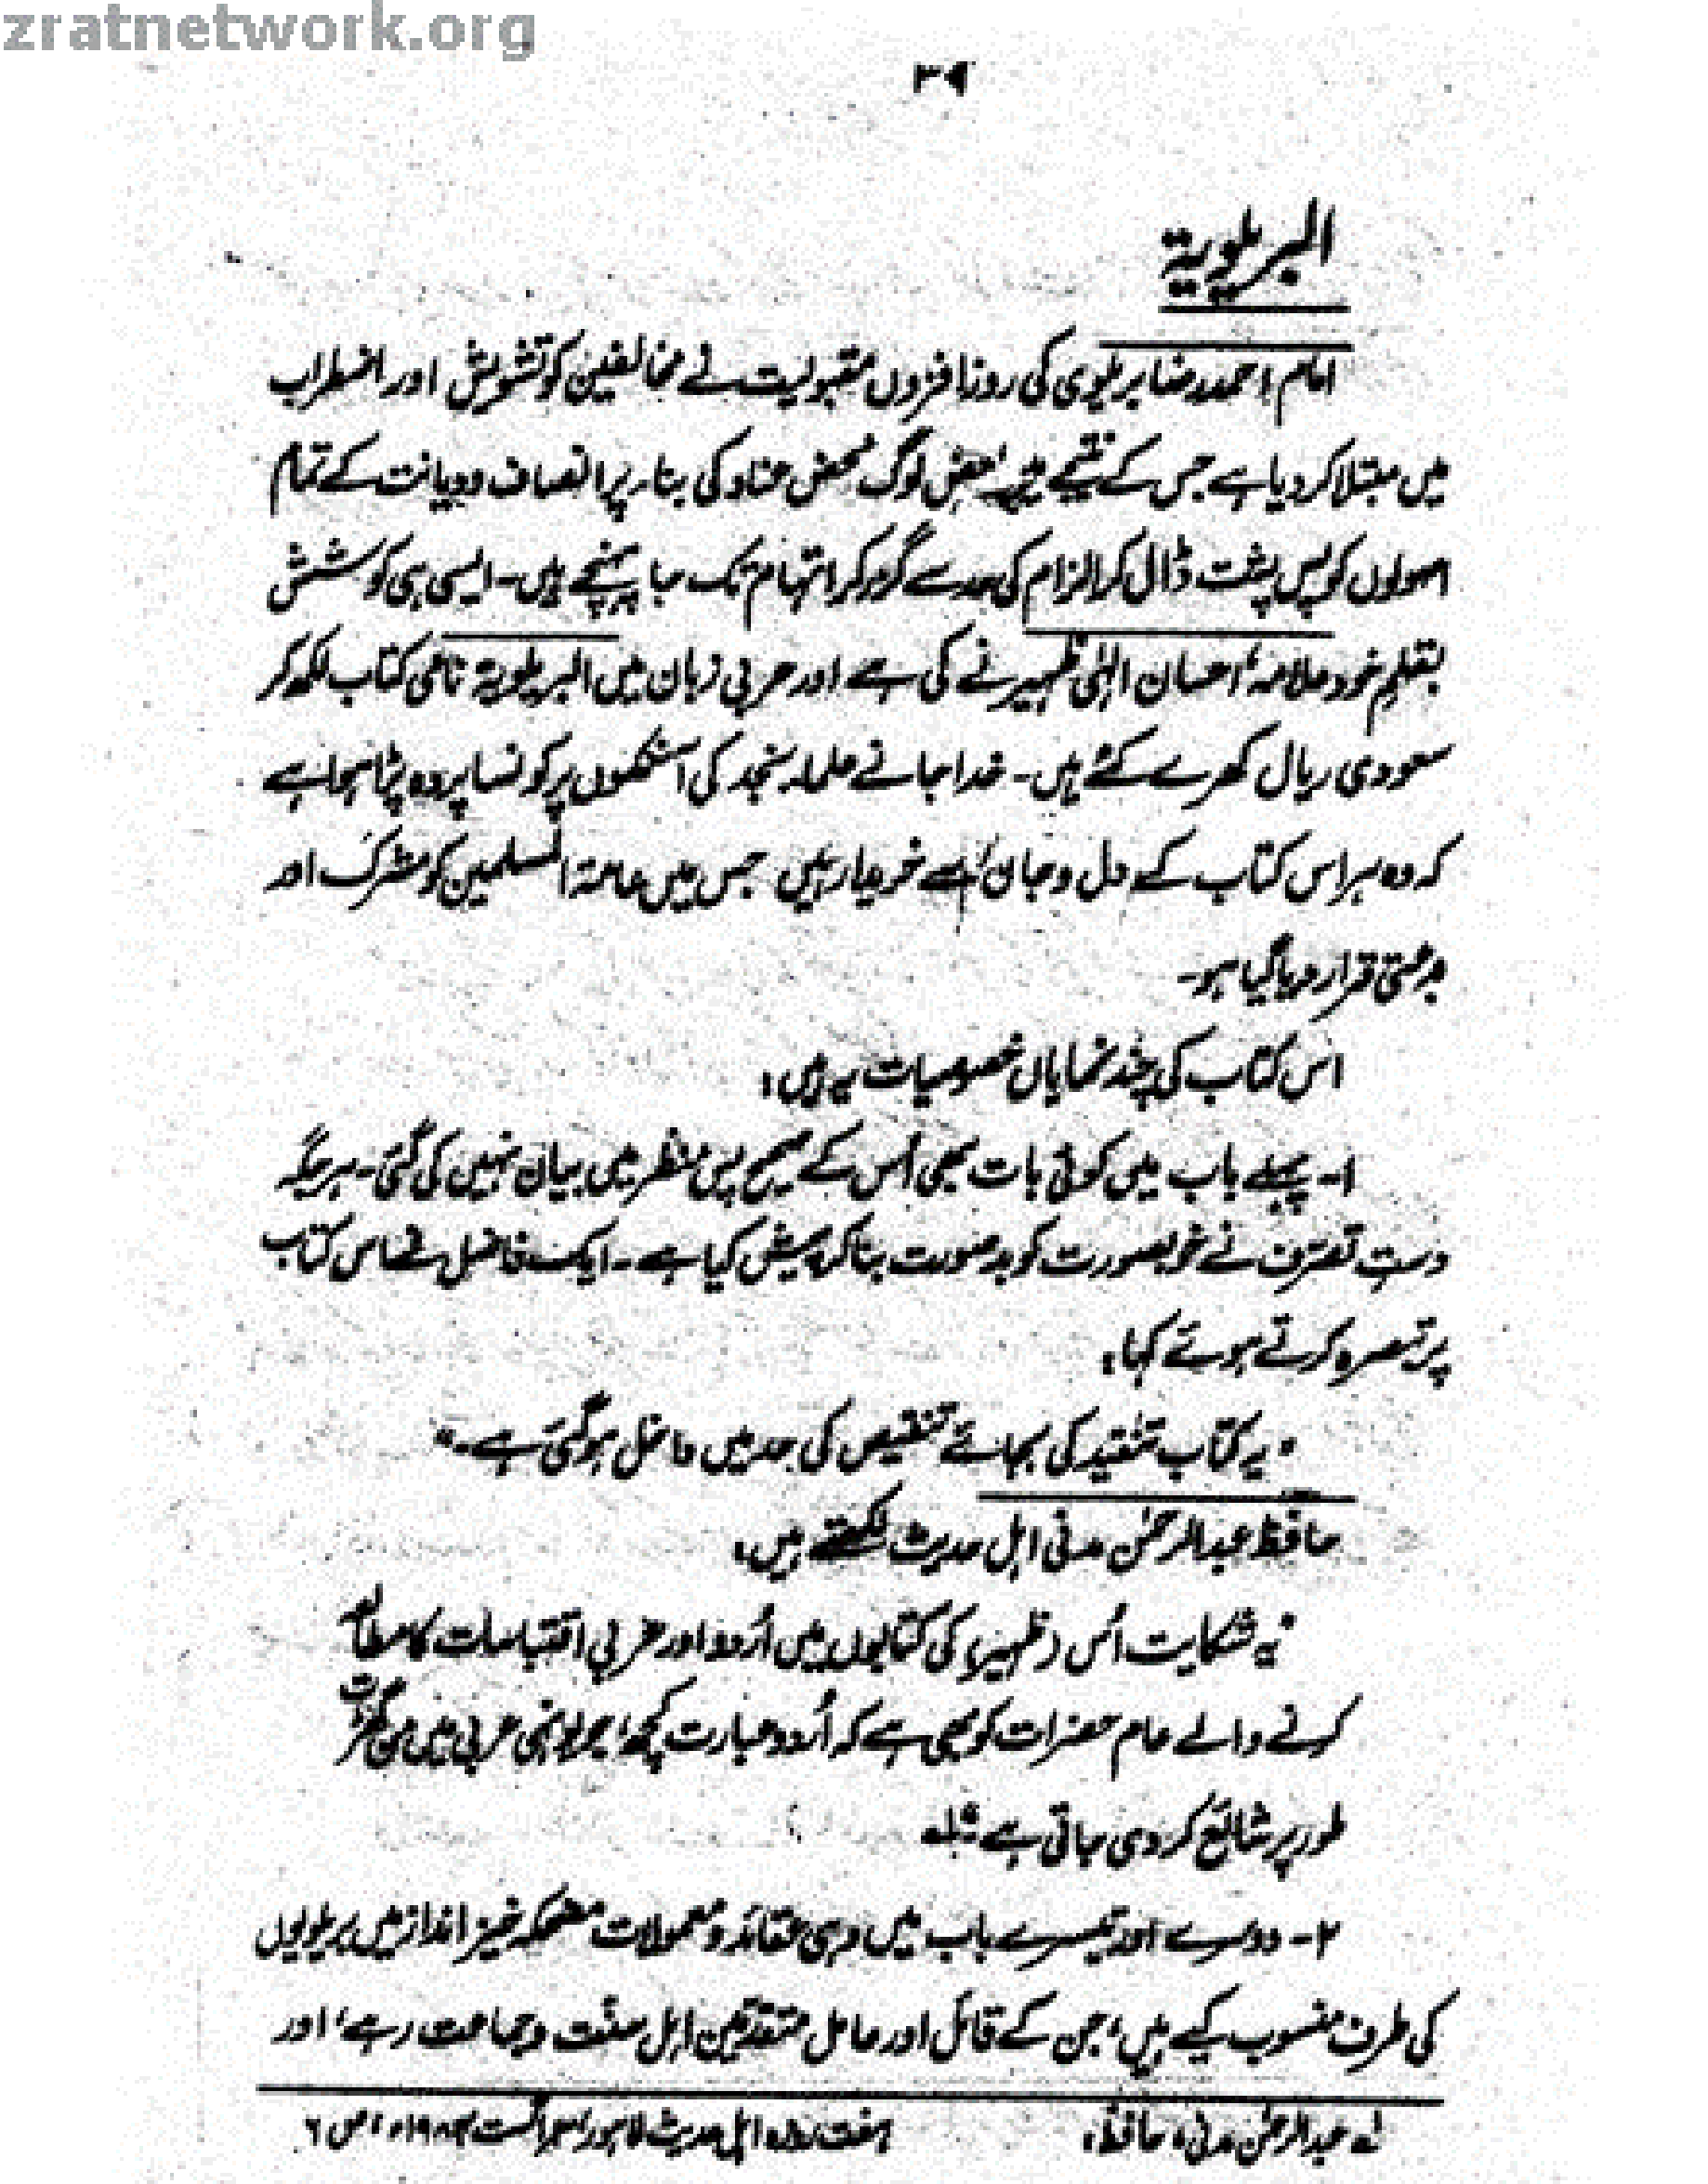 zratnetwork.org
۳۹
البریلویة
امام احمد رضا بریلوی کی روز افزوں مقبولیت نے مخالفین کو تشویش اور اضطراب
میں مبتلا کر دیا ہے جس کے نتیجے میں بعض لوگ محض عناد کی بناء پر انصاف و دیانت کے تمام
اصولوں کو پس پشت ڈال کر الزام کی حد سے گزر کر اتہام تک جا پہنچے ہیں۔ ایسی ہی کوشش
بقلمِ خود علامہ احسان الٰہی ظہیر نے کی ہے اور عربی زبان میں البریلویة نامی کتاب لکھ کر
سعودی ریال کھرے کئے ہیں۔ خدا جانے علماء نجد کی آنکھوں پر کونسا پردہ پڑا ہوا ہے
کہ وہ ہر اس کتاب کے دل و جان سے خریدار ہیں جس میں عامۃ المسلمین کو مشرک اور
بدعتی قرار دیا گیا ہو۔
اس کتاب کی چند نمایاں خصوصیات یہ ہیں:
۱۔ پہلے باب میں کوئی بات بھی اُس کے صحیح پس منظر میں بیان نہیں کی گئی۔ ہر جگہ
دستِ تصرف نے خوبصورت کو بدصورت بنا کر پیش کیا ہے۔ ایک فاضل نے اس کتاب
پر تبصرہ کرتے ہوئے کہا:
"یہ کتاب تنقید کی بجائے تنقیص کی حد میں داخل ہو گئی ہے۔"
حافظ عبدالرحمٰن مدنی اہل حدیث لکھتے ہیں:
"یہ شکایت اُس (ظہیر) کی کتابوں میں اُردو اور عربی اقتباسات کا مطالعہ
کرنے والے عام حضرات کو بھی ہے کہ اُردو عبارت کچھ ہے جو یونہی عربی میں من گھڑت
طور پر شائع کر دی جاتی ہے" لہ
۲۔ دوسرے اور تیسرے باب میں وہی عقائد و معمولات مضحکہ خیز انداز میں بریلویوں
کی طرف منسوب کیے ہیں، جن کے قائل اور عامل متقدمین اہل سنّت و جماعت رہے، اور
لہ عبدالرحمٰن مدنی، حافظ: ہفت روزہ اہل حدیث لاہور، ۳ اگست ۱۹۸۴ء، ص ۶